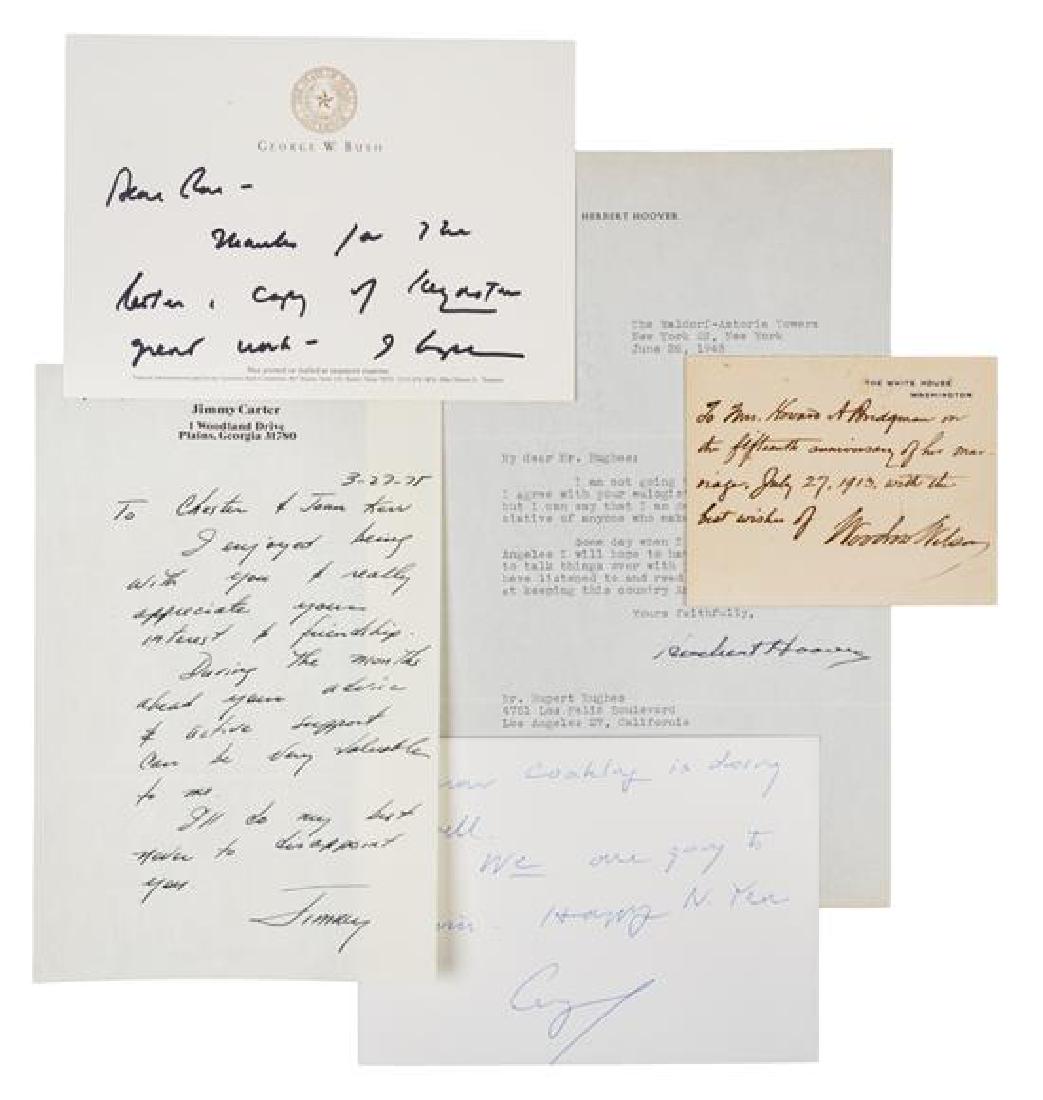 GEORGE W. BUSH
Dear Ron –
Thanks for the
letter & copy of Keynotes
great work – I
Not printed or mailed at taxpayer expense.
HERBERT HOOVER
The Waldorf-Astoria Towers
New York 22, New York
June 26, 1948
My dear Mr. Hughes:
I am not going
I agree with your eulogist
but I can say that I am
ciative of anyone who
Some day when I
Angeles I will hope to
to talk things over with
have listened to and read
at keeping this country
Yours faithfully,
Herbert Hoover
Mr. Rupert Hughes
4751 Los Feliz Boulevard
Los Angeles 27, California
THE WHITE HOUSE
WASHINGTON
To Mr. Howard A Bridgman on
the fifteenth anniversary of his mar-
riage, July 27, 1913, with the
best wishes of
Woodrow Wilson
Jimmy Carter
1 Woodland Drive
Plains, Georgia 31780
3-27-75
To Chester & Joan Kerr
I enjoyed being
with you & really
appreciate your
interest & friendship.
During the months
ahead your advice
& active support
can be very valuable
to me.
I'll do my best
never to disappoint
you
Jimmy
is doing
ell.
We are going to
win. Happy N. Year